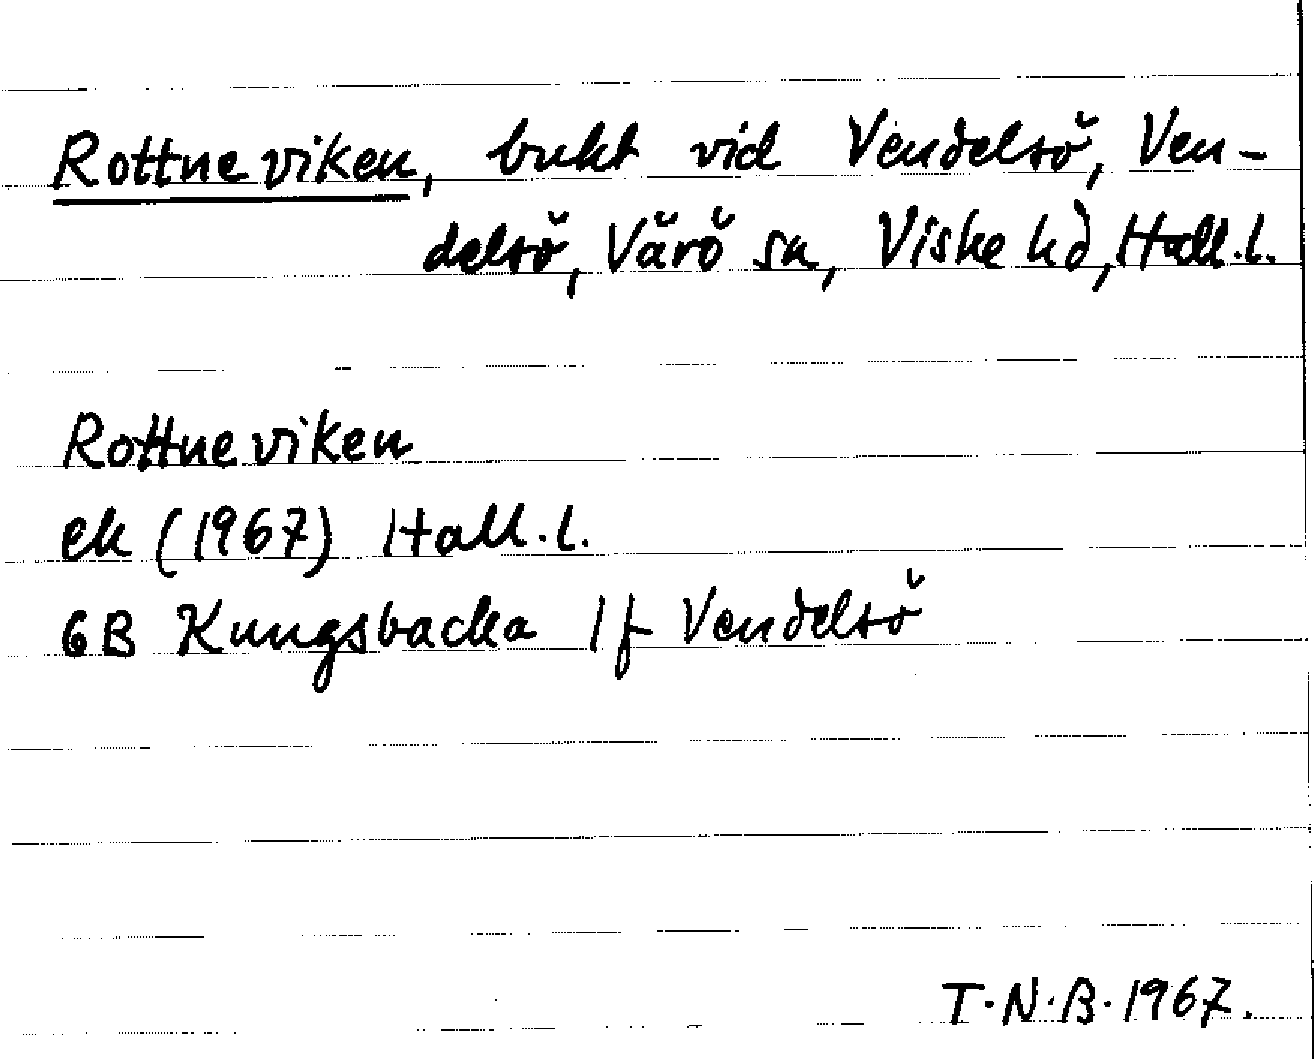 Rottneviken, bukt vid Vendelsö, Ven-
delsö, Värö sn, Viske hd, Hall.l.
Rottneviken
ek (1967) Hall.l.
6B Kungsbacka 1f Vendelsö
T.N.B. 1967.